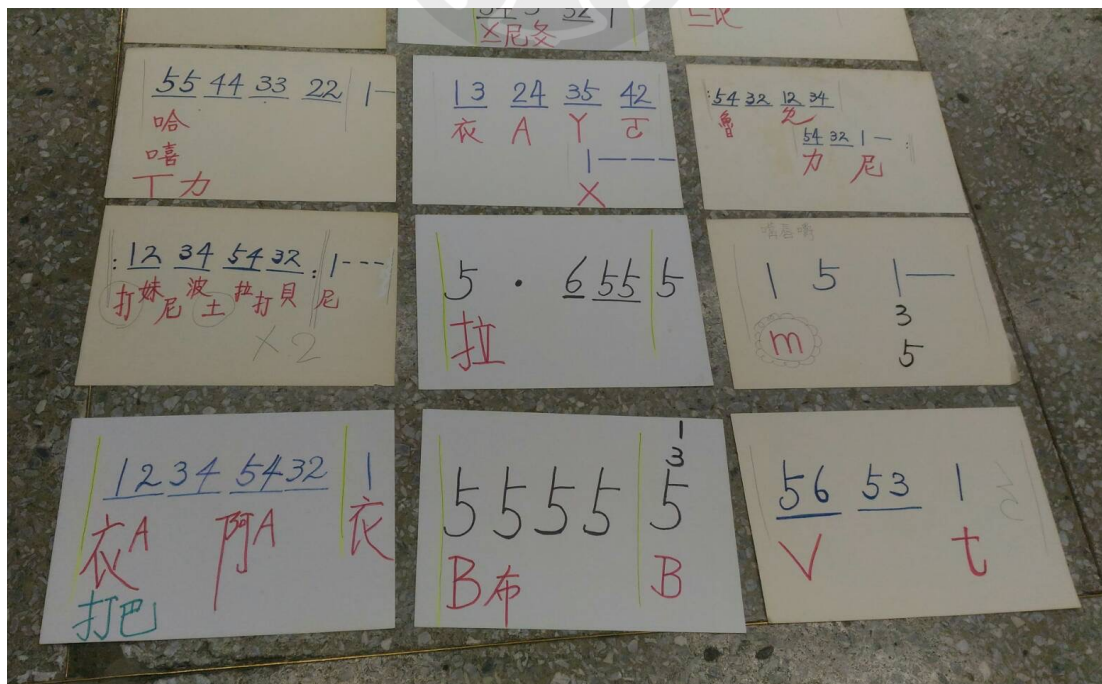 5 4 3 32 1
ㄨ尼爻
55 44 33 22 | 1—
哈
嘻
丅力
13 24 35 42
衣 A Y ㄛ
1————
X
:54 32 12 34
魯
54 32 1— :
力 尼
: 12 34 54 32 : 1---
打妹尼波土拉打貝 尼
×2
5 · 6 55 | 5
拉
嘴唇嘴
1 5 1—
3
m
5
| 12 34 54 32 | 1
衣A 阿A 衣
打巴
1
3
| 5 5 5 5 | 5
B布 B
56 53 1
V t